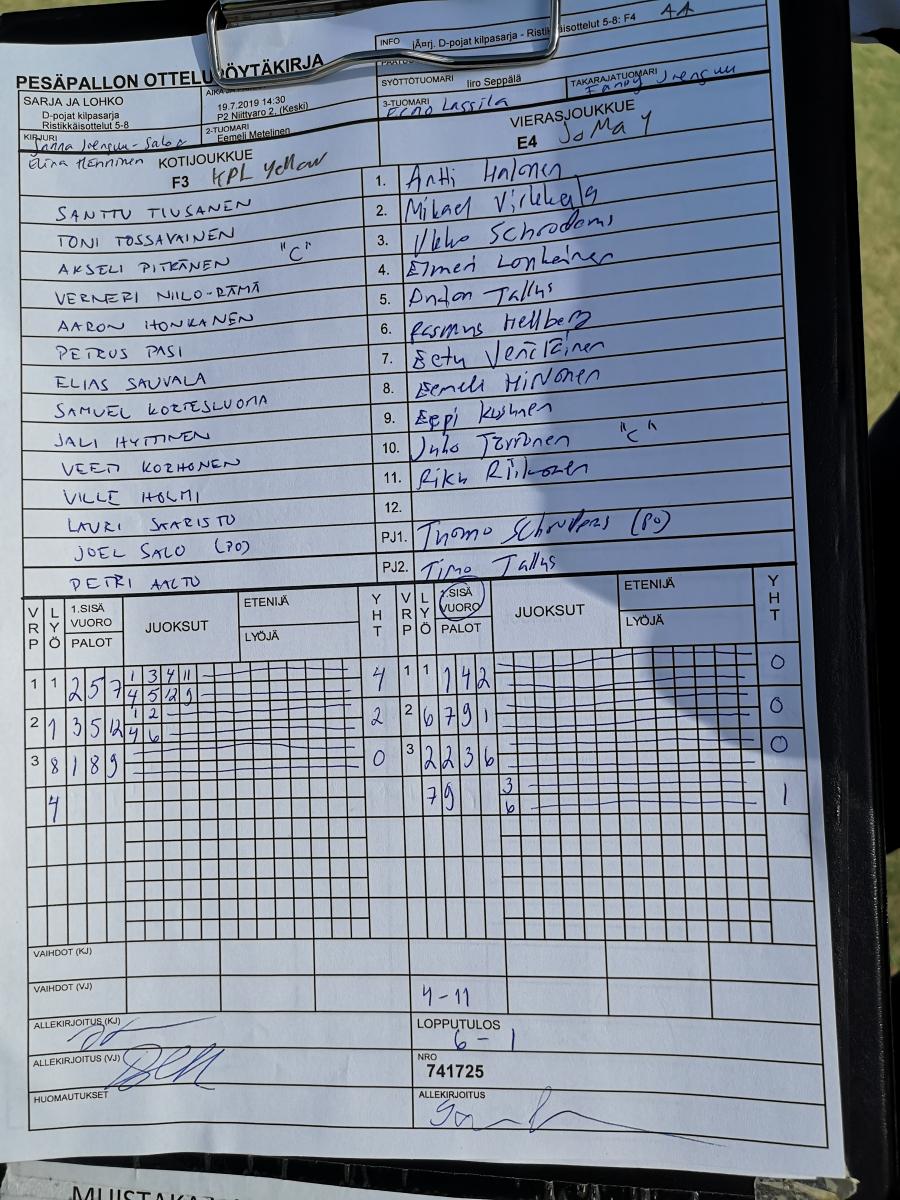 INFO jÄrj. D-pojat kilpasarja - Ristikkäisottelut 5-8: F4 AA
PESÄPALLON OTTELUPÖYTÄKIRJA
SYÖTTÖTUOMARI Iiro Seppälä TAKARAJATUOMARI
SARJA JA LOHKO
D-pojat kilpasarja
Ristikkäisottelut 5-8
19.7.2019 14:30
P2 Niittyaro 2, (Keski)
3-TUOMARI Eero Lassila
KIRJURI
2-TUOMARI
Eemeli Metelinen
Elina Hänninen
KOTIJOUKKUE
F3 KPL Yellow
VIERASJOUKKUE
E4 JoMa Y
SANTTU TIUSANEN 1. Antti Halonen
TONI TOSSAVAINEN 2. Mikael Virkkala
AKSELI PITKÄNEN "C" 3. Ukko Schroderus
VERNERI NIILO-RÄMÄ 4. Elmeri Lonkainen
AARON HONKANEN 5. Anton Tallus
PETRUS PASI 6. Rasmus Hellberg
ELIAS SAUVALA 7. Eetu Venäläinen
SAMUEL KORTESLUOMA 8. Eemeli Hirvonen
JALI HYTTINEN 9. Eppi Kushnen
VEETI KORHONEN 10. Juho Törrönen "C"
VILLE HOLMI 11. Riku Riikonen
LAURI SAARISTO 12.
JOEL SALO (PO) PJ1. Tuomo Schroderus (PO)
PETRI AALTO PJ2. Timo Tallus
VRP LYÖ 1.SISÄ VUORO PALOT JUOKSUT ETENIJÄ LYÖJÄ YHT VRP LYÖ 1.SISÄ VUORO PALOT JUOKSUT ETENIJÄ LYÖJÄ YHT
1 1 2 5 7 1 3 4 11 4 1 1 1 4 2 0
4 5 12 9
2 1 3 5 12 1 2 2 2 6 7 9 1 0
4 6
3 8 1 8 9 0 3 2 2 3 6 0
4 7 9 3 1
6
VAIHDOT (KJ)
VAIHDOT (VJ) 4-11
ALLEKIRJOITUS (KJ) LOPPUTULOS
6 - 1
ALLEKIRJOITUS (VJ) NRO
741725
HUOMAUTUKSET ALLEKIRJOITUS